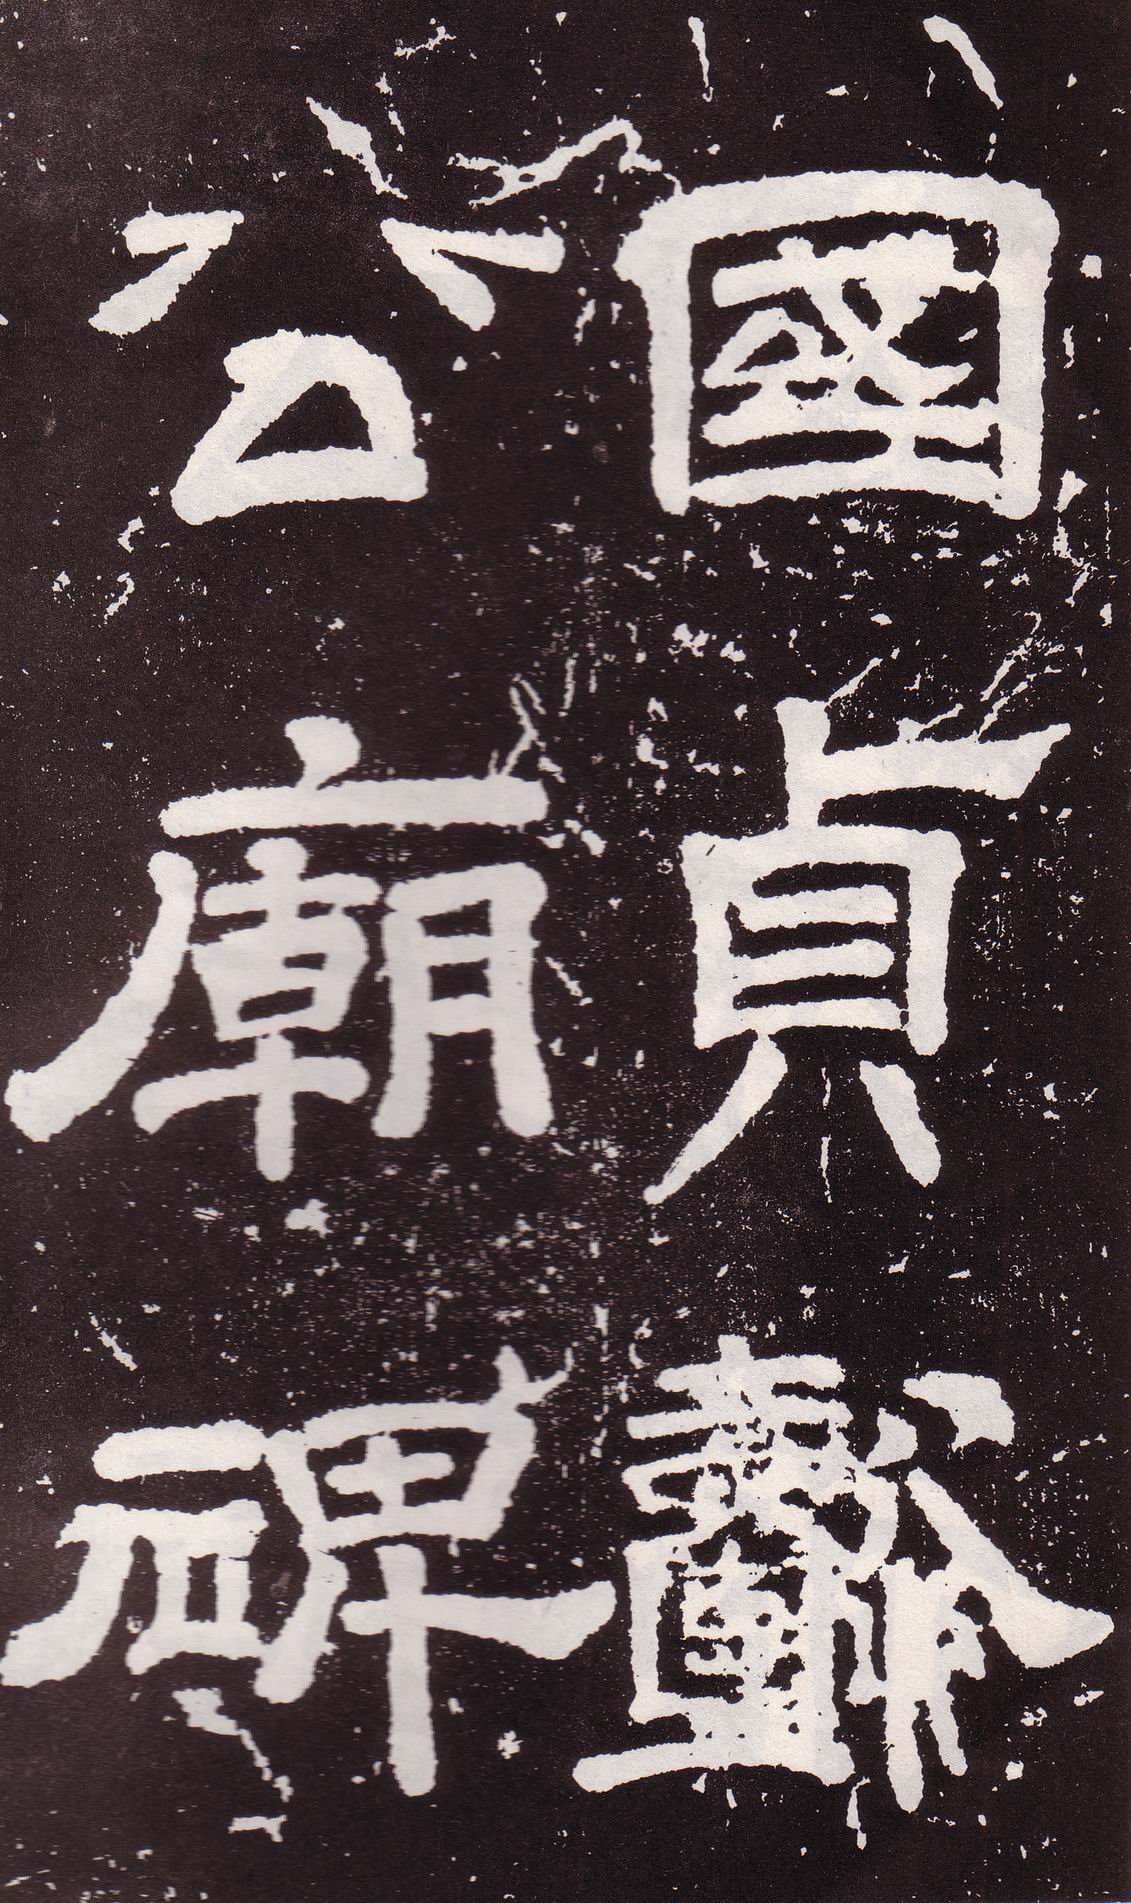 國貞懿
公廟碑